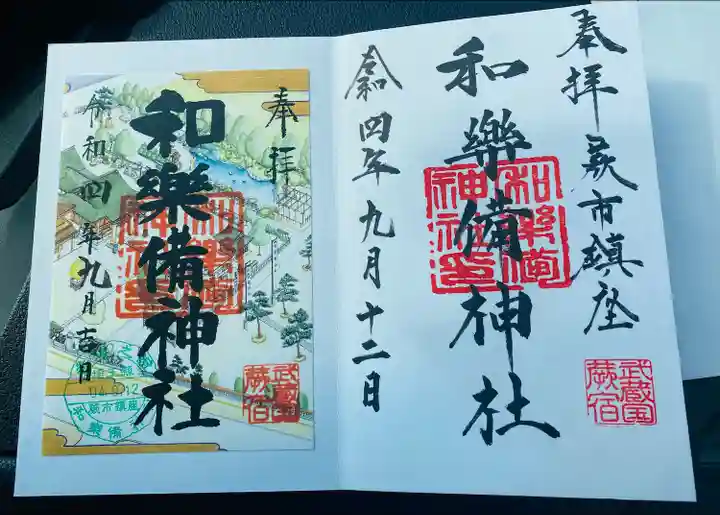 奉拜 蕨市鎮座
和樂備神社
和樂備神社印
武蔵国蕨宿
令和四年九月十二日
奉拜
和樂備神社
武蔵国蕨宿
令和四年九月吉日
04.9.12
蕨市鎮座